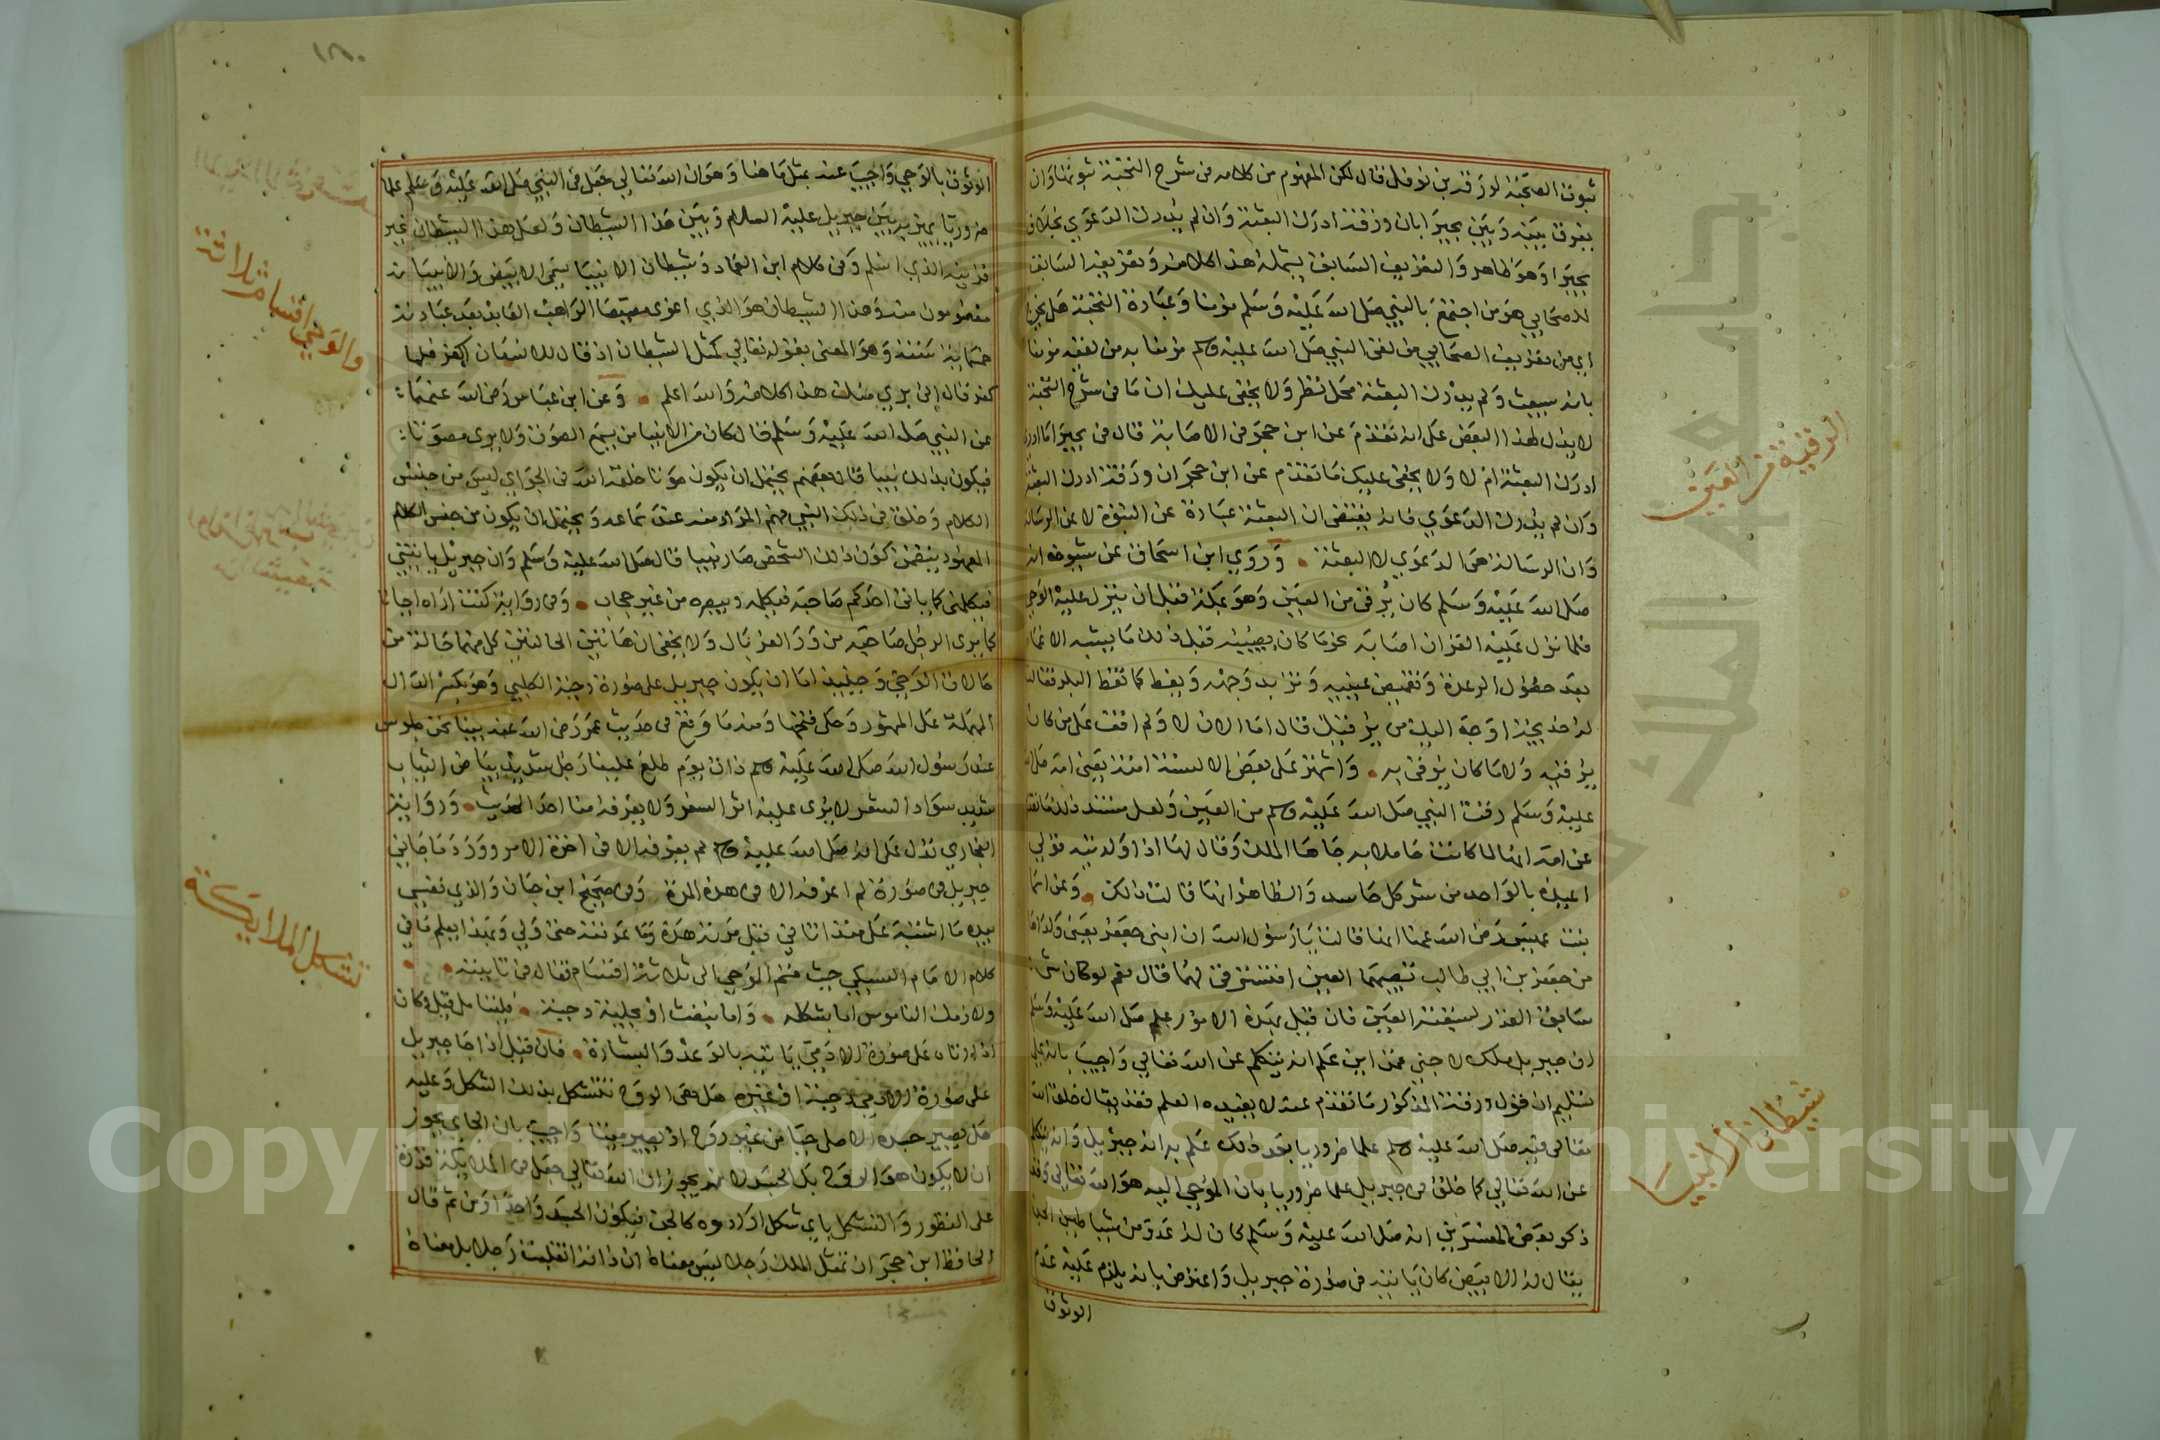 ثبوت الصحبة لورقة بن نوفل قال لكن المفهوم من كلامه في شرح النخبة ثبوتها وان
يفرق بينه وبين بحيرا بان ورقة ادرك البعثة وان لم يدرك الدعوي بخلاف
بحيرا وهو ظاهر والتعريف السابق يشمله هذا كلامه وتعريفه السابق
للصحابي هو من اجتمع بالنبي صلى الله عليه وسلم مومنا وعبارة النخبة هل يخرج
اي من تعريف الصحابي من لقي النبي صلى الله عليه وسلم مومنا به من لقيه مومنا
بانه سيبعث ولم يدرك البعثة محل نظر ولا يخفى عليك ان ما في شرح النخبة
لا يدل لهذا البعض على انه تقدم عن ابن حجر في الاصابة قال في بحيرا ما ادري
ادرك البعثة ام لا ولا يخفى عليك ما تقدم عن ابن حجر ان ورقة ادرك البعثة
وان لم يدرك الدعوي فانه يقتضى ان البعثة عبارة عن النبوة لا عن الرسالة
وان الرسالة هي الدعوي لا البعثة وروي ابن اسحاق عن شيوخه انه
صلى الله عليه وسلم كان يرقى من العين وهو بمكة قبل ان ينزل عليه الوحي
فلما نزل عليه القران اصابه نحو ما كان يصيبه قبل ذلك ما يشبه الاغماء
بعد حصول الرعدة وتغميض عينيه وتربد وجهه ويغط كما تغط البكر فقالت
له خديجة اوجه اليك من يرقيك قال اما الان لا ولم اقف على من كان
يرقيه ولا ما كان يرقى به واشتهر على بعض الالسنة امنة يعني امه صلى الله
عليه وسلم رقت النبي صلى الله عليه وسلم من العين ولعل مستند ذلك ما نقل
عن امه انها لما كانت حاملا به جاها الملك وقال لها اذا ولدتيه قولي
اعيذه بالواحد من شر كل حاسد والظاهر انها قالت ذلك وعن اسما
بنت عميس رضى الله عنها انها قالت يا رسول الله ان ابني جعفر يعني ولداها
من جعفر بن ابي طالب تصيبهما العين افنسترقى لهما قال نعم لو كان شى
سابق القدر لسبقته العين فان قيل بهذه الامور علم صلى الله عليه وسلم
ان جبريل ملك لا جني فمن اين علم انه يتكلم عن الله تعالى واجيب بانه على
تسليم ان قول ورقة المذكور ما تقدم عنه لا يفيده العلم فقد يقال خلق الله
تعالى فيه صلى الله عليه وسلم علما ضروريا بعد ذلك علم به انه جبريل وانه يتكلم
عن الله تعالى كما خلق في جبريل علما ضروريا بان الموحي اليه هو الله تعالى وقد
ذكر بعض المفسرين انه صلى الله عليه وسلم كان له عدو من شياطين الجن
يقال له الابيض كان ياتيه في صورة جبريل واعترض بانه يلزم عليه عدم
الوثوق
الرقية من العين
شيطان الانبيا
الوثوق بالوحي واجيب عنه بمثل ما هنا وهو ان الله تعالى جعل في النبي صلى الله عليه وسلم علما
ضروريا يميز به بين جبريل عليه السلام وبين هذا الشيطان ولعل هذا الشيطان غير
قرينه الذي اسلم وفي كلام ابن العماد وشيطان الانبيا يسمى الابيض والانبيا
معصومون منه وهذا الشيطان هو الذي اغوى برصيصا الراهب العابد بعد عبادته
خمسماية سنة وهو المعنى بقوله تعالى كمثل الشيطان اذ قال للانسان اكفر فلما
كفر قال إني بري منك هذا كلامه والله اعلم وعن ابن عباس رضى الله عنهما
عن النبي صلى الله عليه وسلم قال كان من الانبيا من يسمع الصوت ولا يرى مصوتا
فيكون بذلك نبيا قال بعضهم يحتمل ان يكون صوتا خلقه الله في الجو اي ليس من جنس
الكلام وخلق في ذلك النبي فهم المراد منه عند سماعه ويحتمل ان يكون من جنس الكلام
المعهود يتضمن كون ذلك الشخص صار نبيا قال صلى الله عليه وسلم وان جبريل ياتيني
فيكلمني كما ياتي احدكم صاحبه فيكلمه ويبصره من غير حجاب وفي رواية كنت اراه احيانا
كما يرى الرجل صاحبه من ورا الغربال ولا يخفى ان هاتين الحالتين كل منهما حالة من
حالات الوحي وحينئذ اما ان يكون جبريل على صورة دحية الكلبي وهو بكسر الدال
المهملة على المشهور وحكى فتحها ومنه ما وقع في حديث عمر رضى الله عنه بينا نحن جلوس
عند رسول الله صلى الله عليه وسلم ذات يوم طلع علينا رجل شديد بياض الثياب
شديد سواد الشعر لا يرى عليه اثر السفر ولا يعرفه منا احد الحديث ورواية
البخاري تدل على انه صلى الله عليه وسلم لم يعرفه الا في اخرة الامر وورد ما جاني
جبريل في صورة لم اعرفه الا في هذه المرة وفي صحيح ابن حبان والذي نفسي
بيده ما اشتبه على منذ اتاني قبل مرته هذه وما عرفته حتى ولي وبهذا يعلم ما في
كلام الامام السبكي حيث قسم الوحي الى ثلاثة اقسام فقال في تاييته
ولازمك الناموس اما بشكله واما بنفث او بحلية دحية فليتامل قيل وكان
اذا اتاه على صورة الادمي ياتيه بالوعد والبشارة فان قيل اذا جا جبريل
على صورة الادمي دحية او غيره هل هي الروح تتشكل بذلك الشكل وعليه
هل يصير جسده الاصلي حيا من غير روح او يصير ميتا واجيب بان الجاى يجوز
ان لا يكون هو الروح بل الجسد لانه يجوز ان الله تعالى جعل في الملايكة قدرة
على التطور والتشكل باي شكل ارادوه كالجن فيكون الجسد واحدا ومن ثم قال
الحافظ ابن حجر ان تمثل الملك رجلا ليس معناه ان ذاته انقلبت رجلا بل معناه
والوحي اقسام ثلاثة
تشكل الملايكة
Copyright © King Saud University